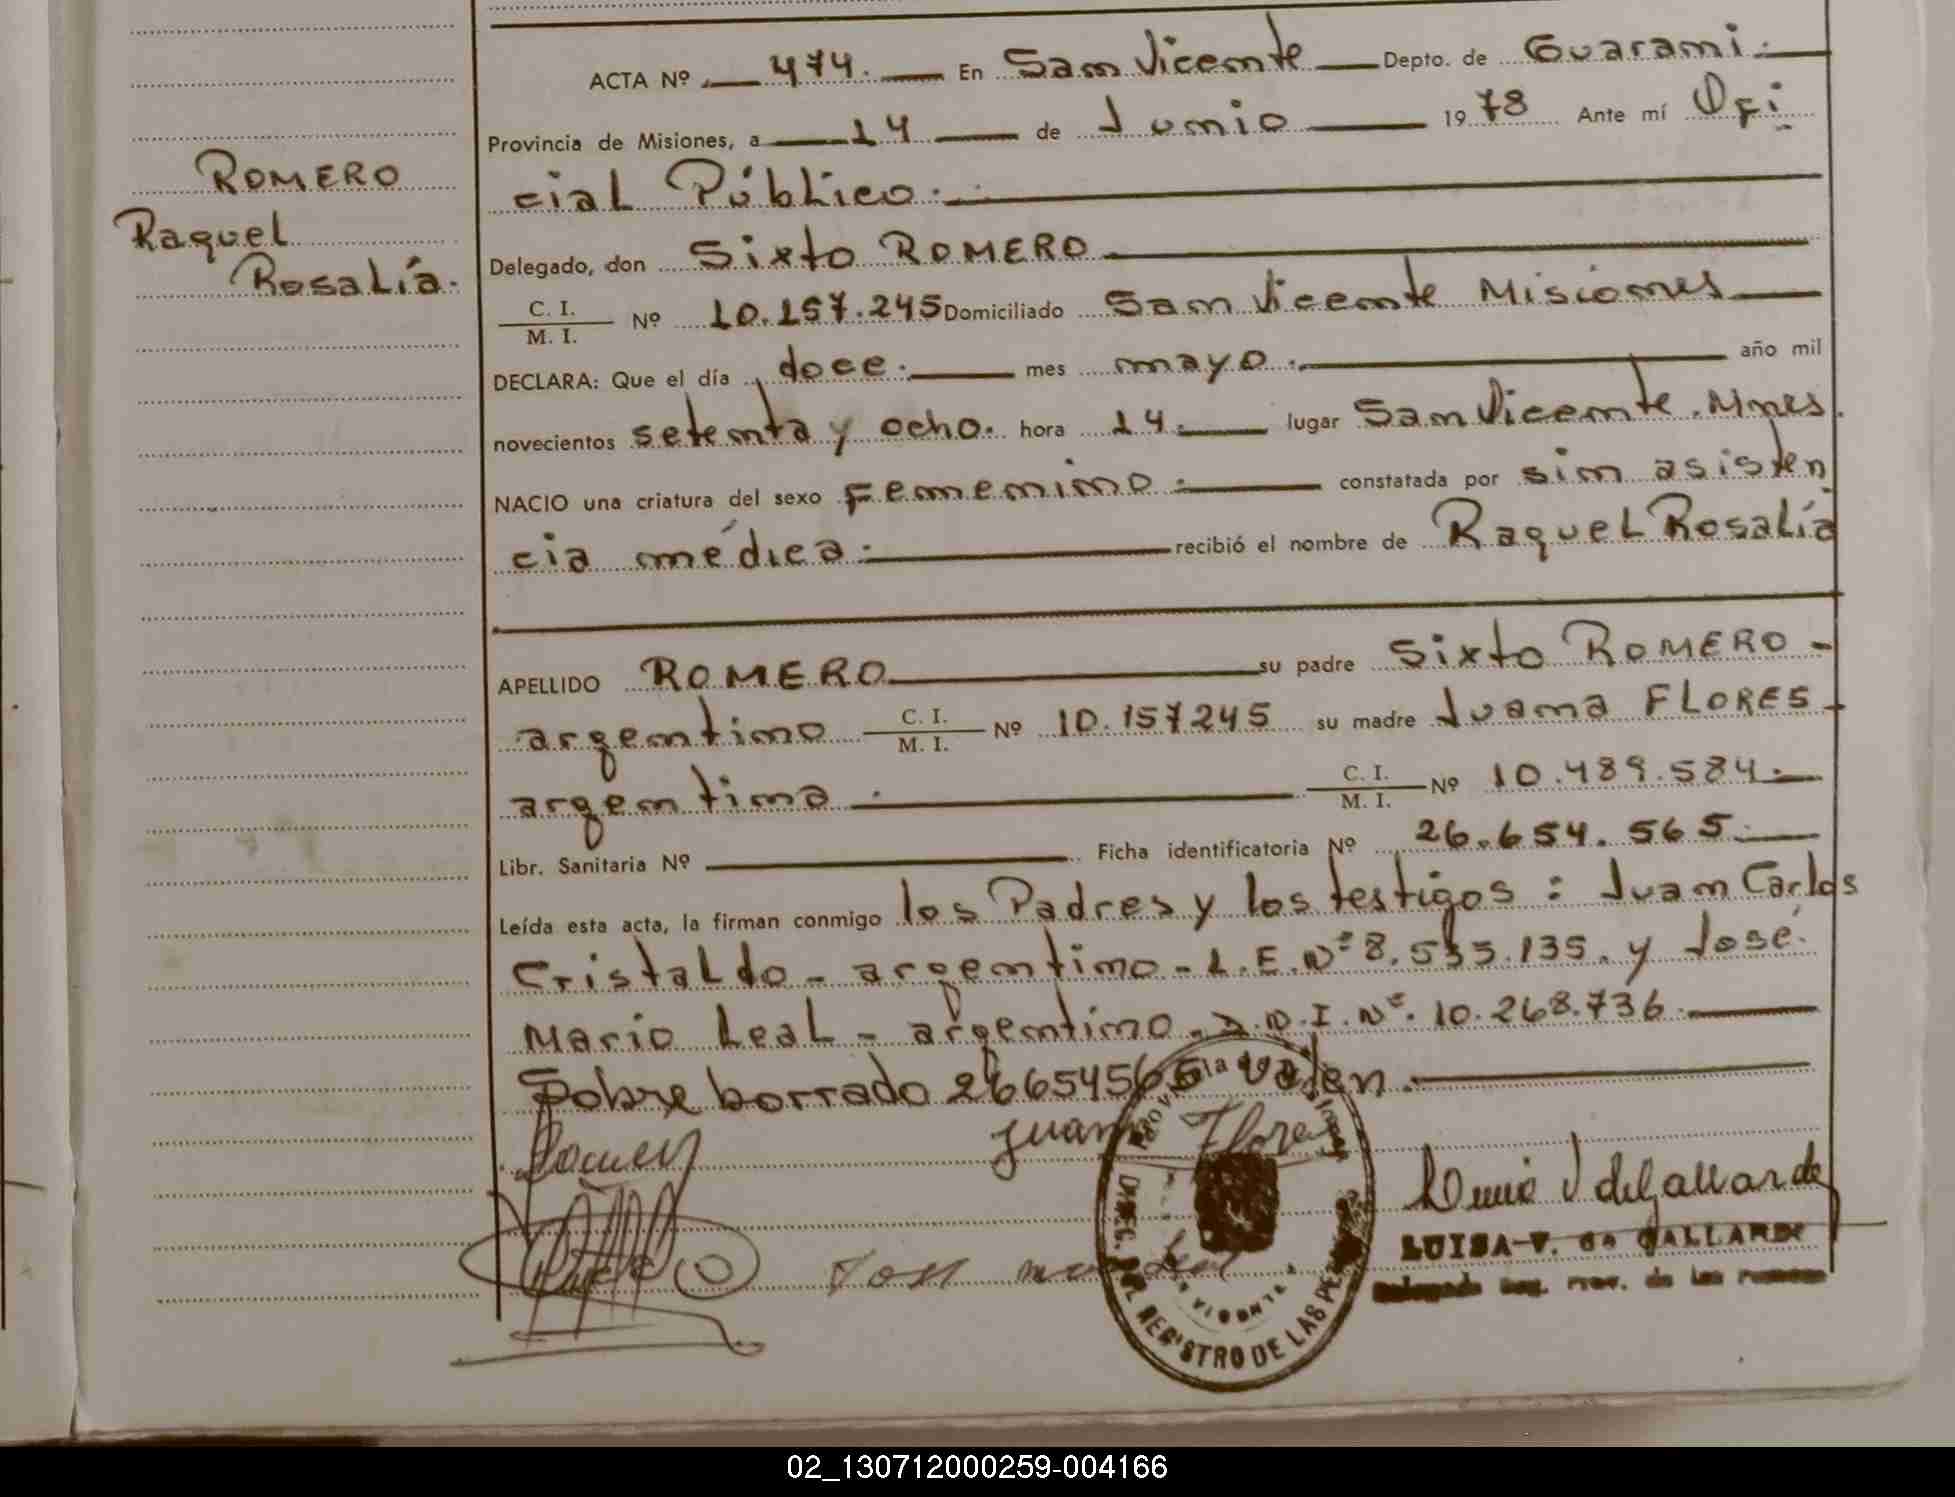 ACTA Nº 474. En San Vicente Depto. de Guaraní.
Provincia de Misiones, a 14 de Junio 1978 Ante mí Ofi
cial Público.
ROMERO
Raquel
Rosalía.
Delegado, don Sixto ROMERO
C. I. / M. I. Nº 10.157.245 Domiciliado San Vicente Misiones
DECLARA: Que el día doce. mes mayo. año mil
novecientos setenta y ocho. hora 14. lugar San Vicente. Mnes.
NACIO una criatura del sexo Femenino. constatada por sin asisten
cia médica. recibió el nombre de Raquel Rosalía
APELLIDO ROMERO su padre Sixto ROMERO -
argentino C. I. / M. I. Nº 10.157245 su madre Juana FLORES
argentina. C. I. / M. I. Nº 10.489.584.
Libr. Sanitaria Nº Ficha identificatoria Nº 26.654.565.
Leída esta acta, la firman conmigo los Padres y los testigos: Juan Carlos
Cristaldo - argentino - L.E.Nº 8.535.135. y José
Mario Leal - argentino - D.N.I.Nº. 10.268.736.
Sobre borrado 26654565 valen.
Juana Flores
LUISA V. de GALLARDO
DIREC. DEL REGISTRO DE LAS PE
02_130712000259-004166